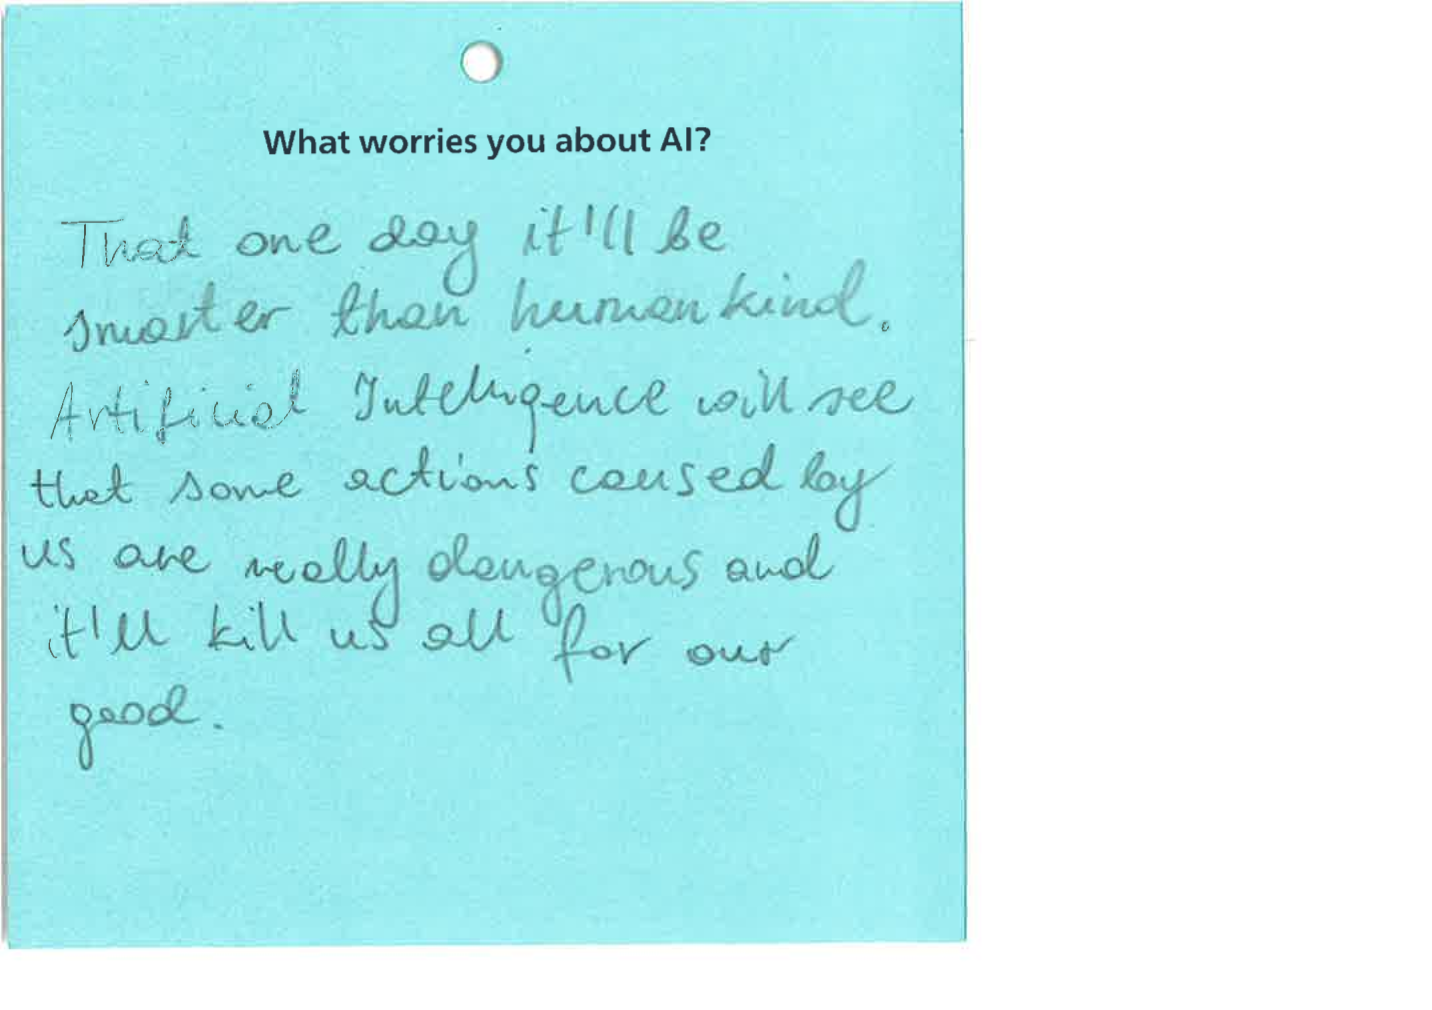 What worries you about AI?
That one day it'll be
smarter than humankind.
Artificial Intelligence will see
that some actions caused by
us are really dangerous and
it'll kill us all for our
good.